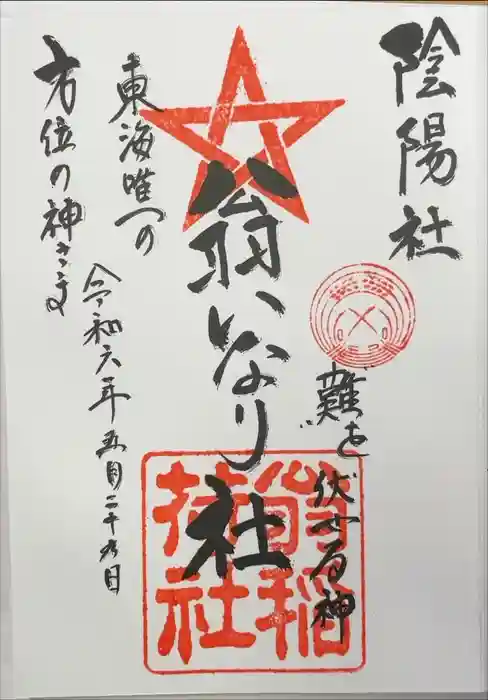 陰陽社
難を
伏せる神
翁いなり社
東海唯一の
方位の神さま
令和六年五月二十九日